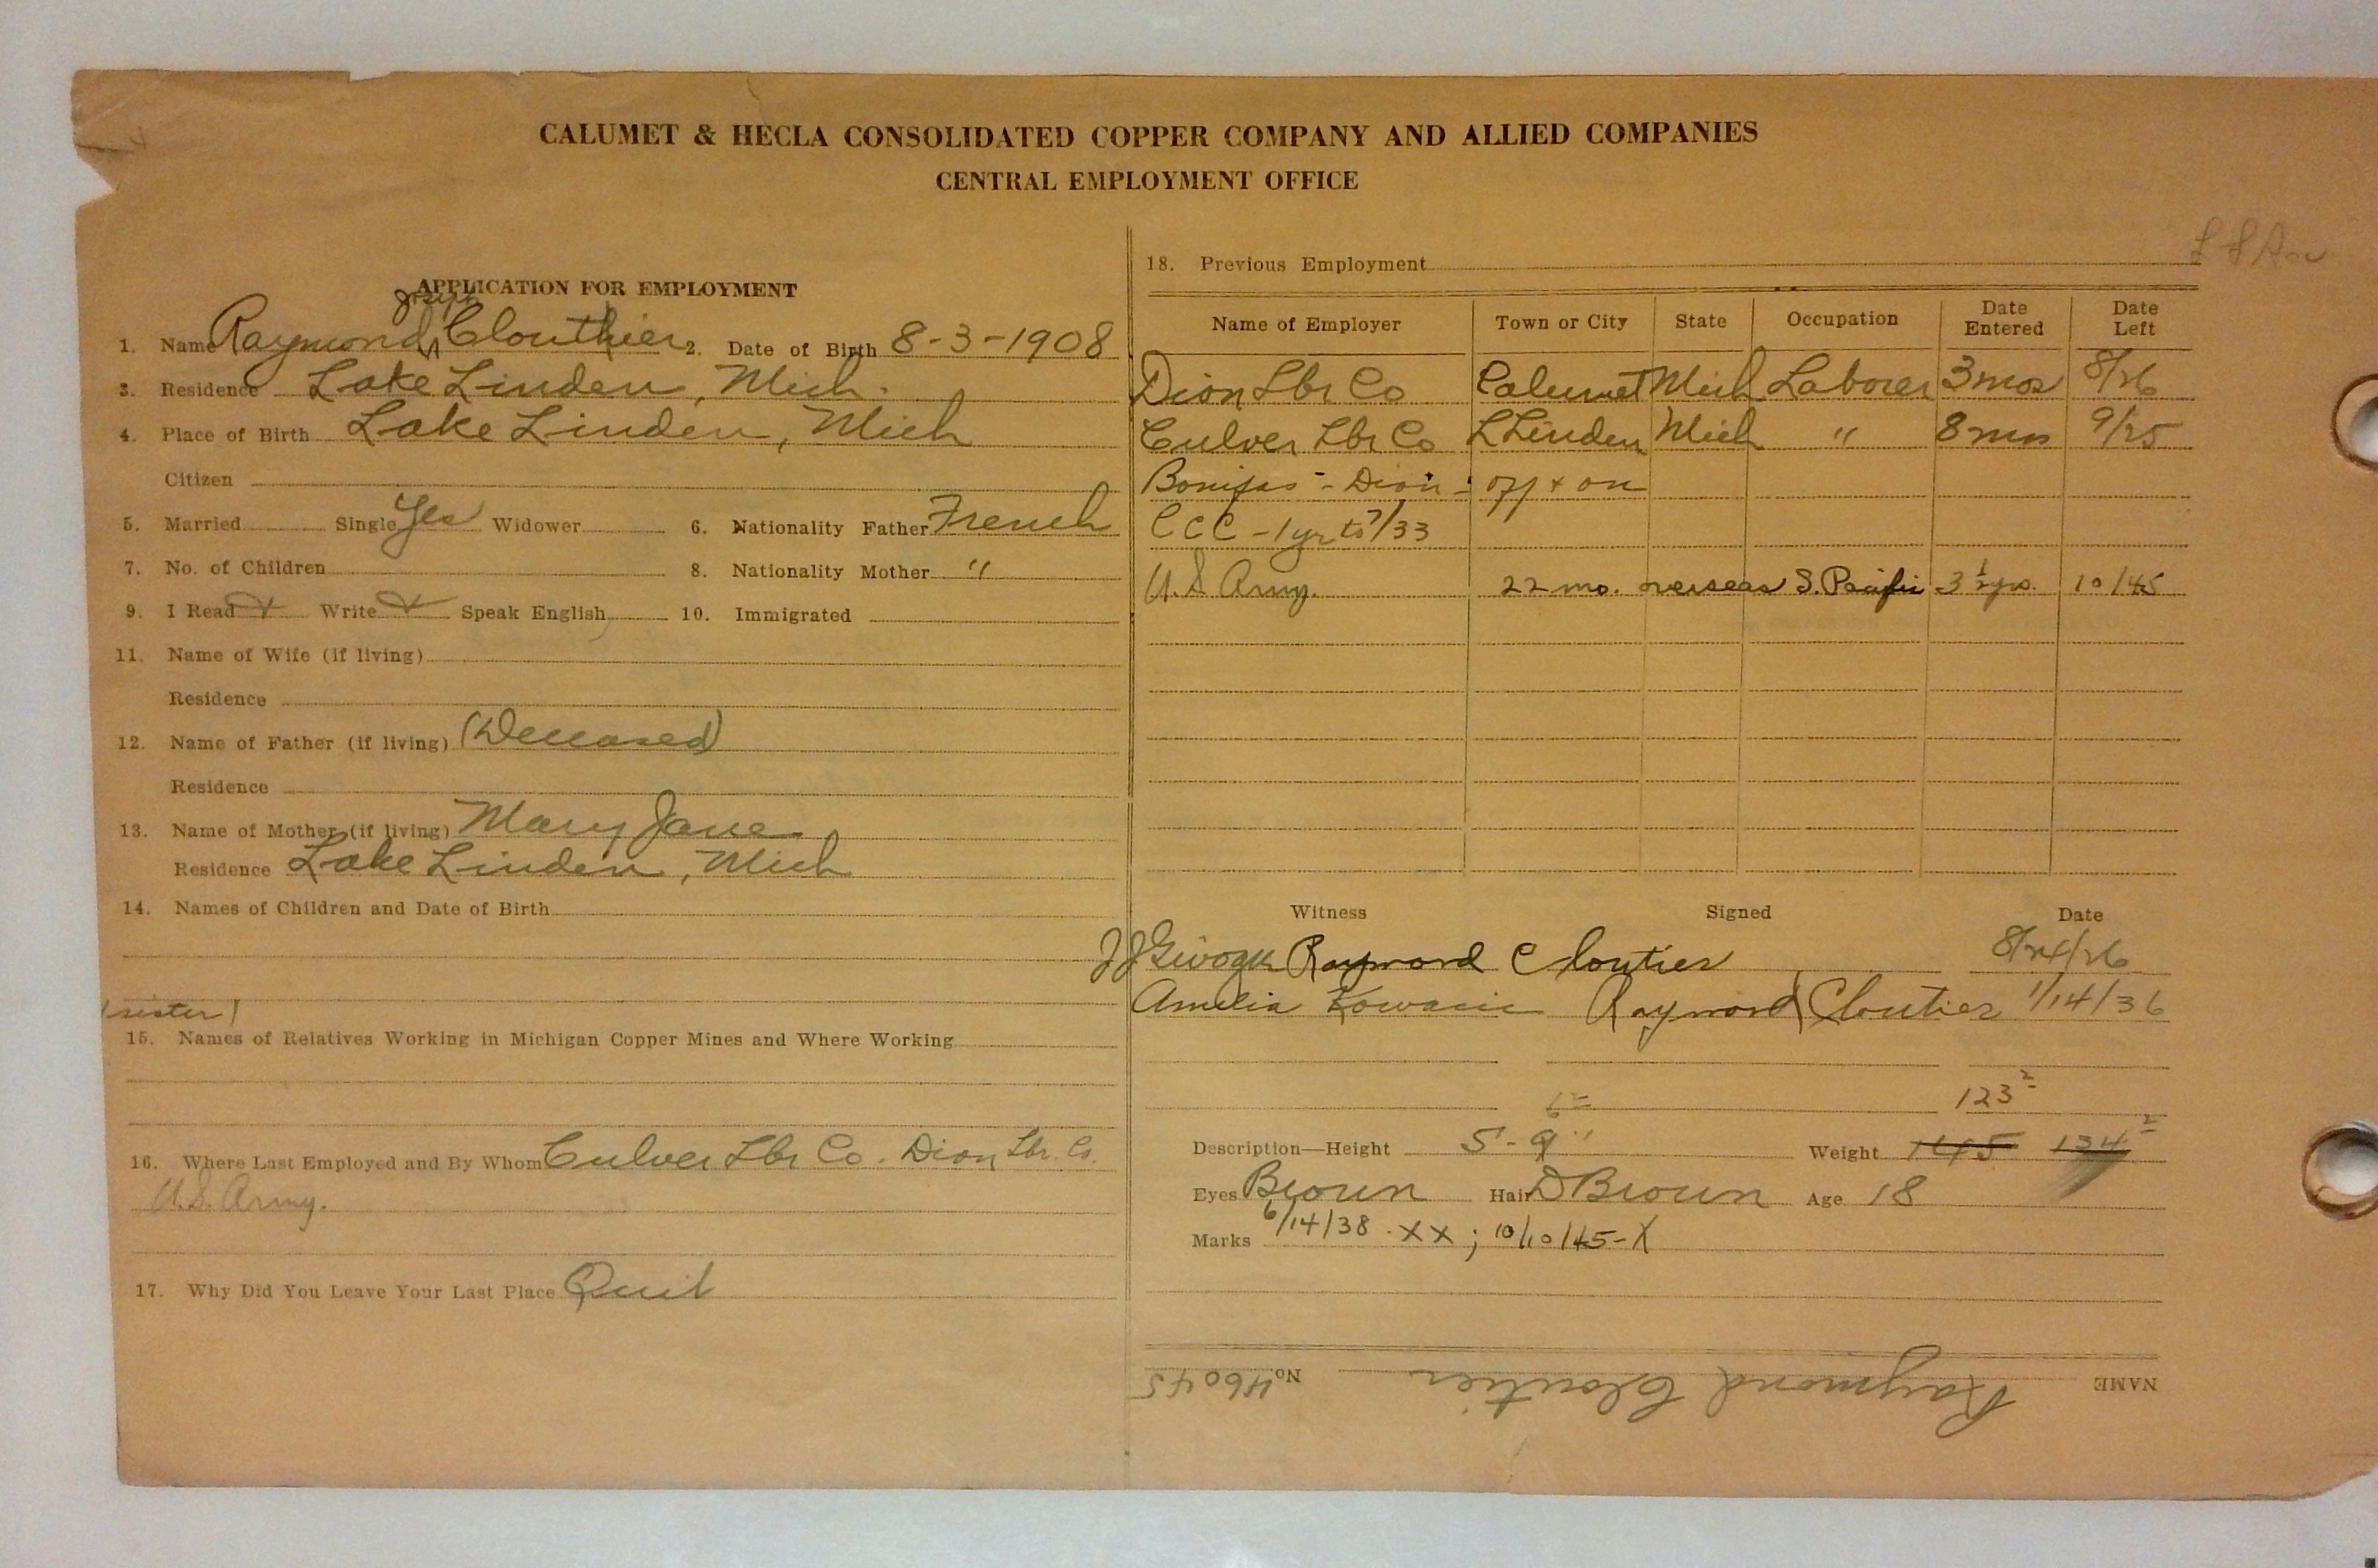 CALUMET & HECLA CONSOLIDATED COPPER COMPANY AND ALLIED COMPANIES
CENTRAL EMPLOYMENT OFFICE
APPLICATION FOR EMPLOYMENT
Joseph
1. Name Raymond Clouthier 2. Date of Birth 8-3-1908
3. Residence Lake Linden, Mich.
4. Place of Birth Lake Linden, Mich
Citizen
5. Married Single Yes Widower 6. Nationality Father French
7. No. of Children 8. Nationality Mother "
9. I Read Write Speak English 10. Immigrated
11. Name of Wife (if living)
Residence
12. Name of Father (if living) (Deceased)
Residence
13. Name of Mother (if living) Mary Jane
Residence Lake Linden, Mich
14. Names of Children and Date of Birth
(sister)
15. Names of Relatives Working in Michigan Copper Mines and Where Working
16. Where Last Employed and By Whom Culver Lbr Co. Dion Lbr. Co.
U.S. Army.
17. Why Did You Leave Your Last Place Quit
18. Previous Employment
Name of Employer Town or City State Occupation Date Entered Date Left
Dion Lbr Co Calumet Mich Laborer 3 mos 8/26
Culver Lbr Co L Linden Mich " 8 mos 9/25
Bonifas - Dion - off + on
CCC - 1 yr to 7/33
U.S. Army. 22 mo. overseas S. Pacific 3 1/2 yrs. 10/45
Witness Signed Date
Raymond Cloutier 8/24/26
Amelia Raymond Cloutier 1/14/36
123
Description—Height 5'-9" Weight 145 134
Eyes Brown Hair D Brown Age 18
Marks 6/14/38 - XX; 10/10/45 - X
NAME Raymond Cloutier No. 46045